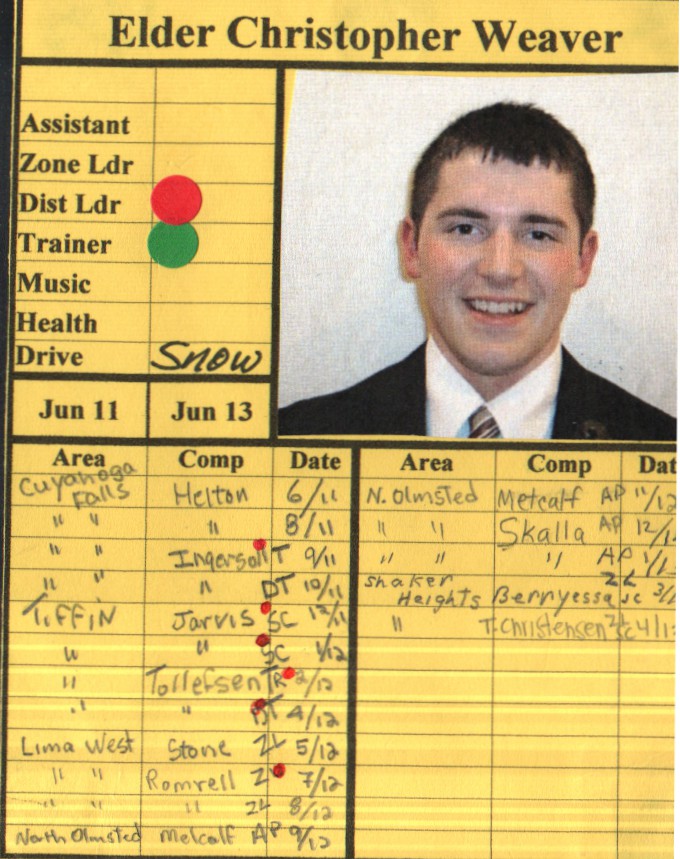 Elder Christopher Weaver
Assistant
Zone Ldr
Dist Ldr
Trainer
Music
Health
Drive Snow
Jun 11 Jun 13
Area Comp Date
Cuyahoga Falls Helton 6/11
" " " 8/11
" " Ingersoll T 9/11
" " " DT 10/11
Tiffin Jarvis SC 12/1
" " SC 1/12
" Tollefsen TR 2/12
" " DT 4/12
Lima West Stone ZL 5/12
" " Romrell ZL 7/12
" " " ZL 8/12
North Olmsted Metcalf AP 9/12
Area Comp Dat
N. Olmsted Metcalf AP 11/12
" " Skalla AP 12/1
" " " AP 1/1
Shaker Heights Berryessa ZL SC 3/1
" T. Christensen ZL SC 4/1